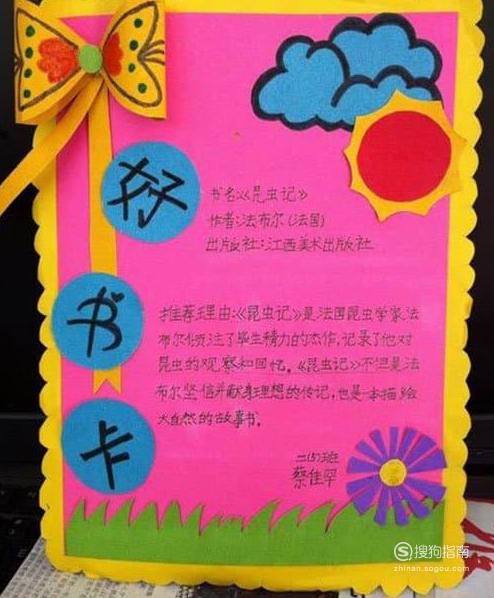 好
书
卡
书名:《昆虫记》
作者:法布尔(法国)
出版社:江西美术出版社
推荐理由:《昆虫记》是法国昆虫学家法
布尔倾注了毕生精力的杰作,记录了他对
昆虫的观察和回忆。《昆虫记》不但是法
布尔坚信并献身理想的传记,也是一本描绘
大自然的故事书。
二(5)班
蔡佳罕
搜狗指南
zhinan.sogou.com